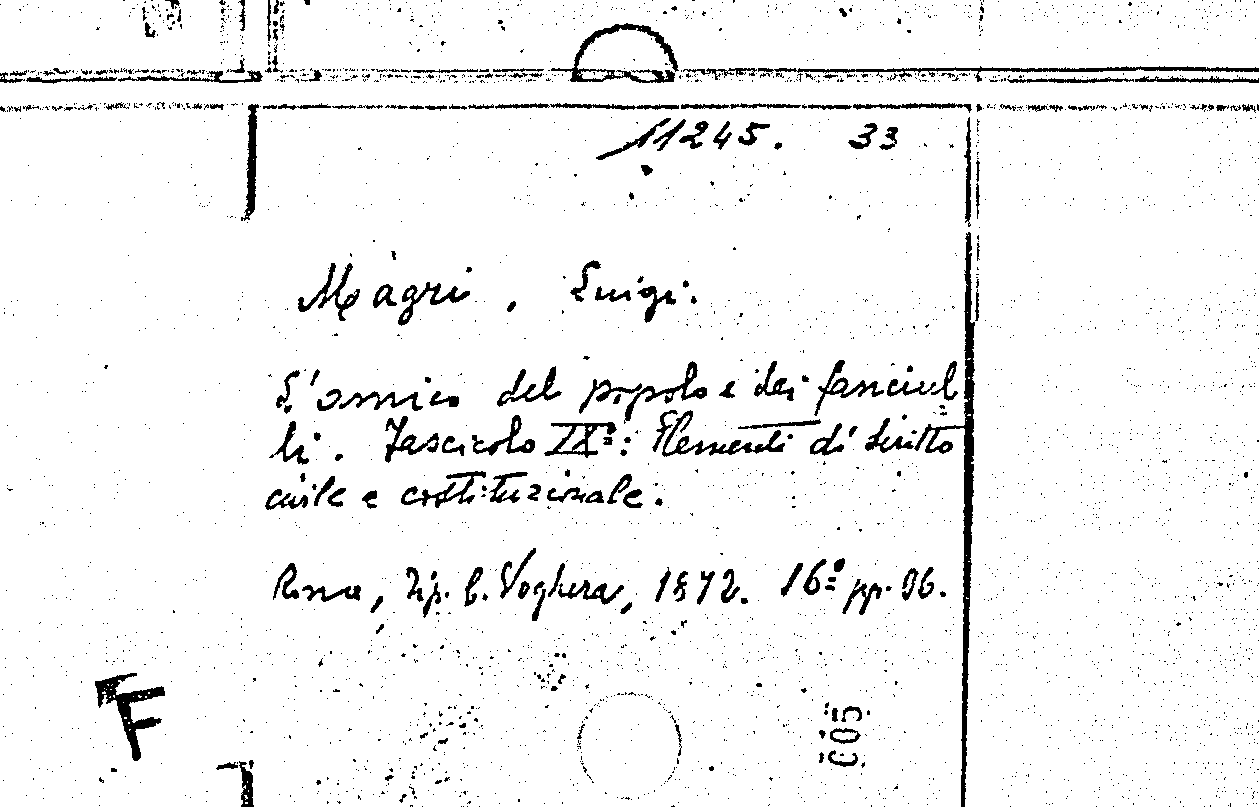 11245. 33
Màgri, Luigi.
L'amico del popolo e dei fanciul=
li. Fascicolo IXº: Elementi di diritto
civile e costituzionale.
Roma, Tip. C. Voghera, 1872. 16º pp. 96.
F
005